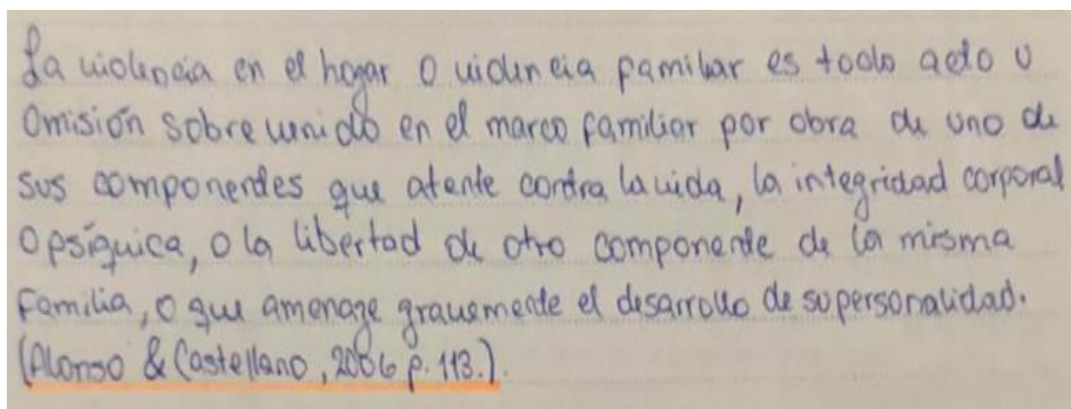 La violencia en el hogar o violencia familiar es todo acto u
omisión sobrevenido en el marco familiar por obra de uno de
sus componentes que atente contra la vida, la integridad corporal
o psíquica, o la libertad de otro componente de la misma
familia, o que amenaze gravemente el desarrollo de su personalidad.
(Alonso & Castellano, 2006 p. 113.).